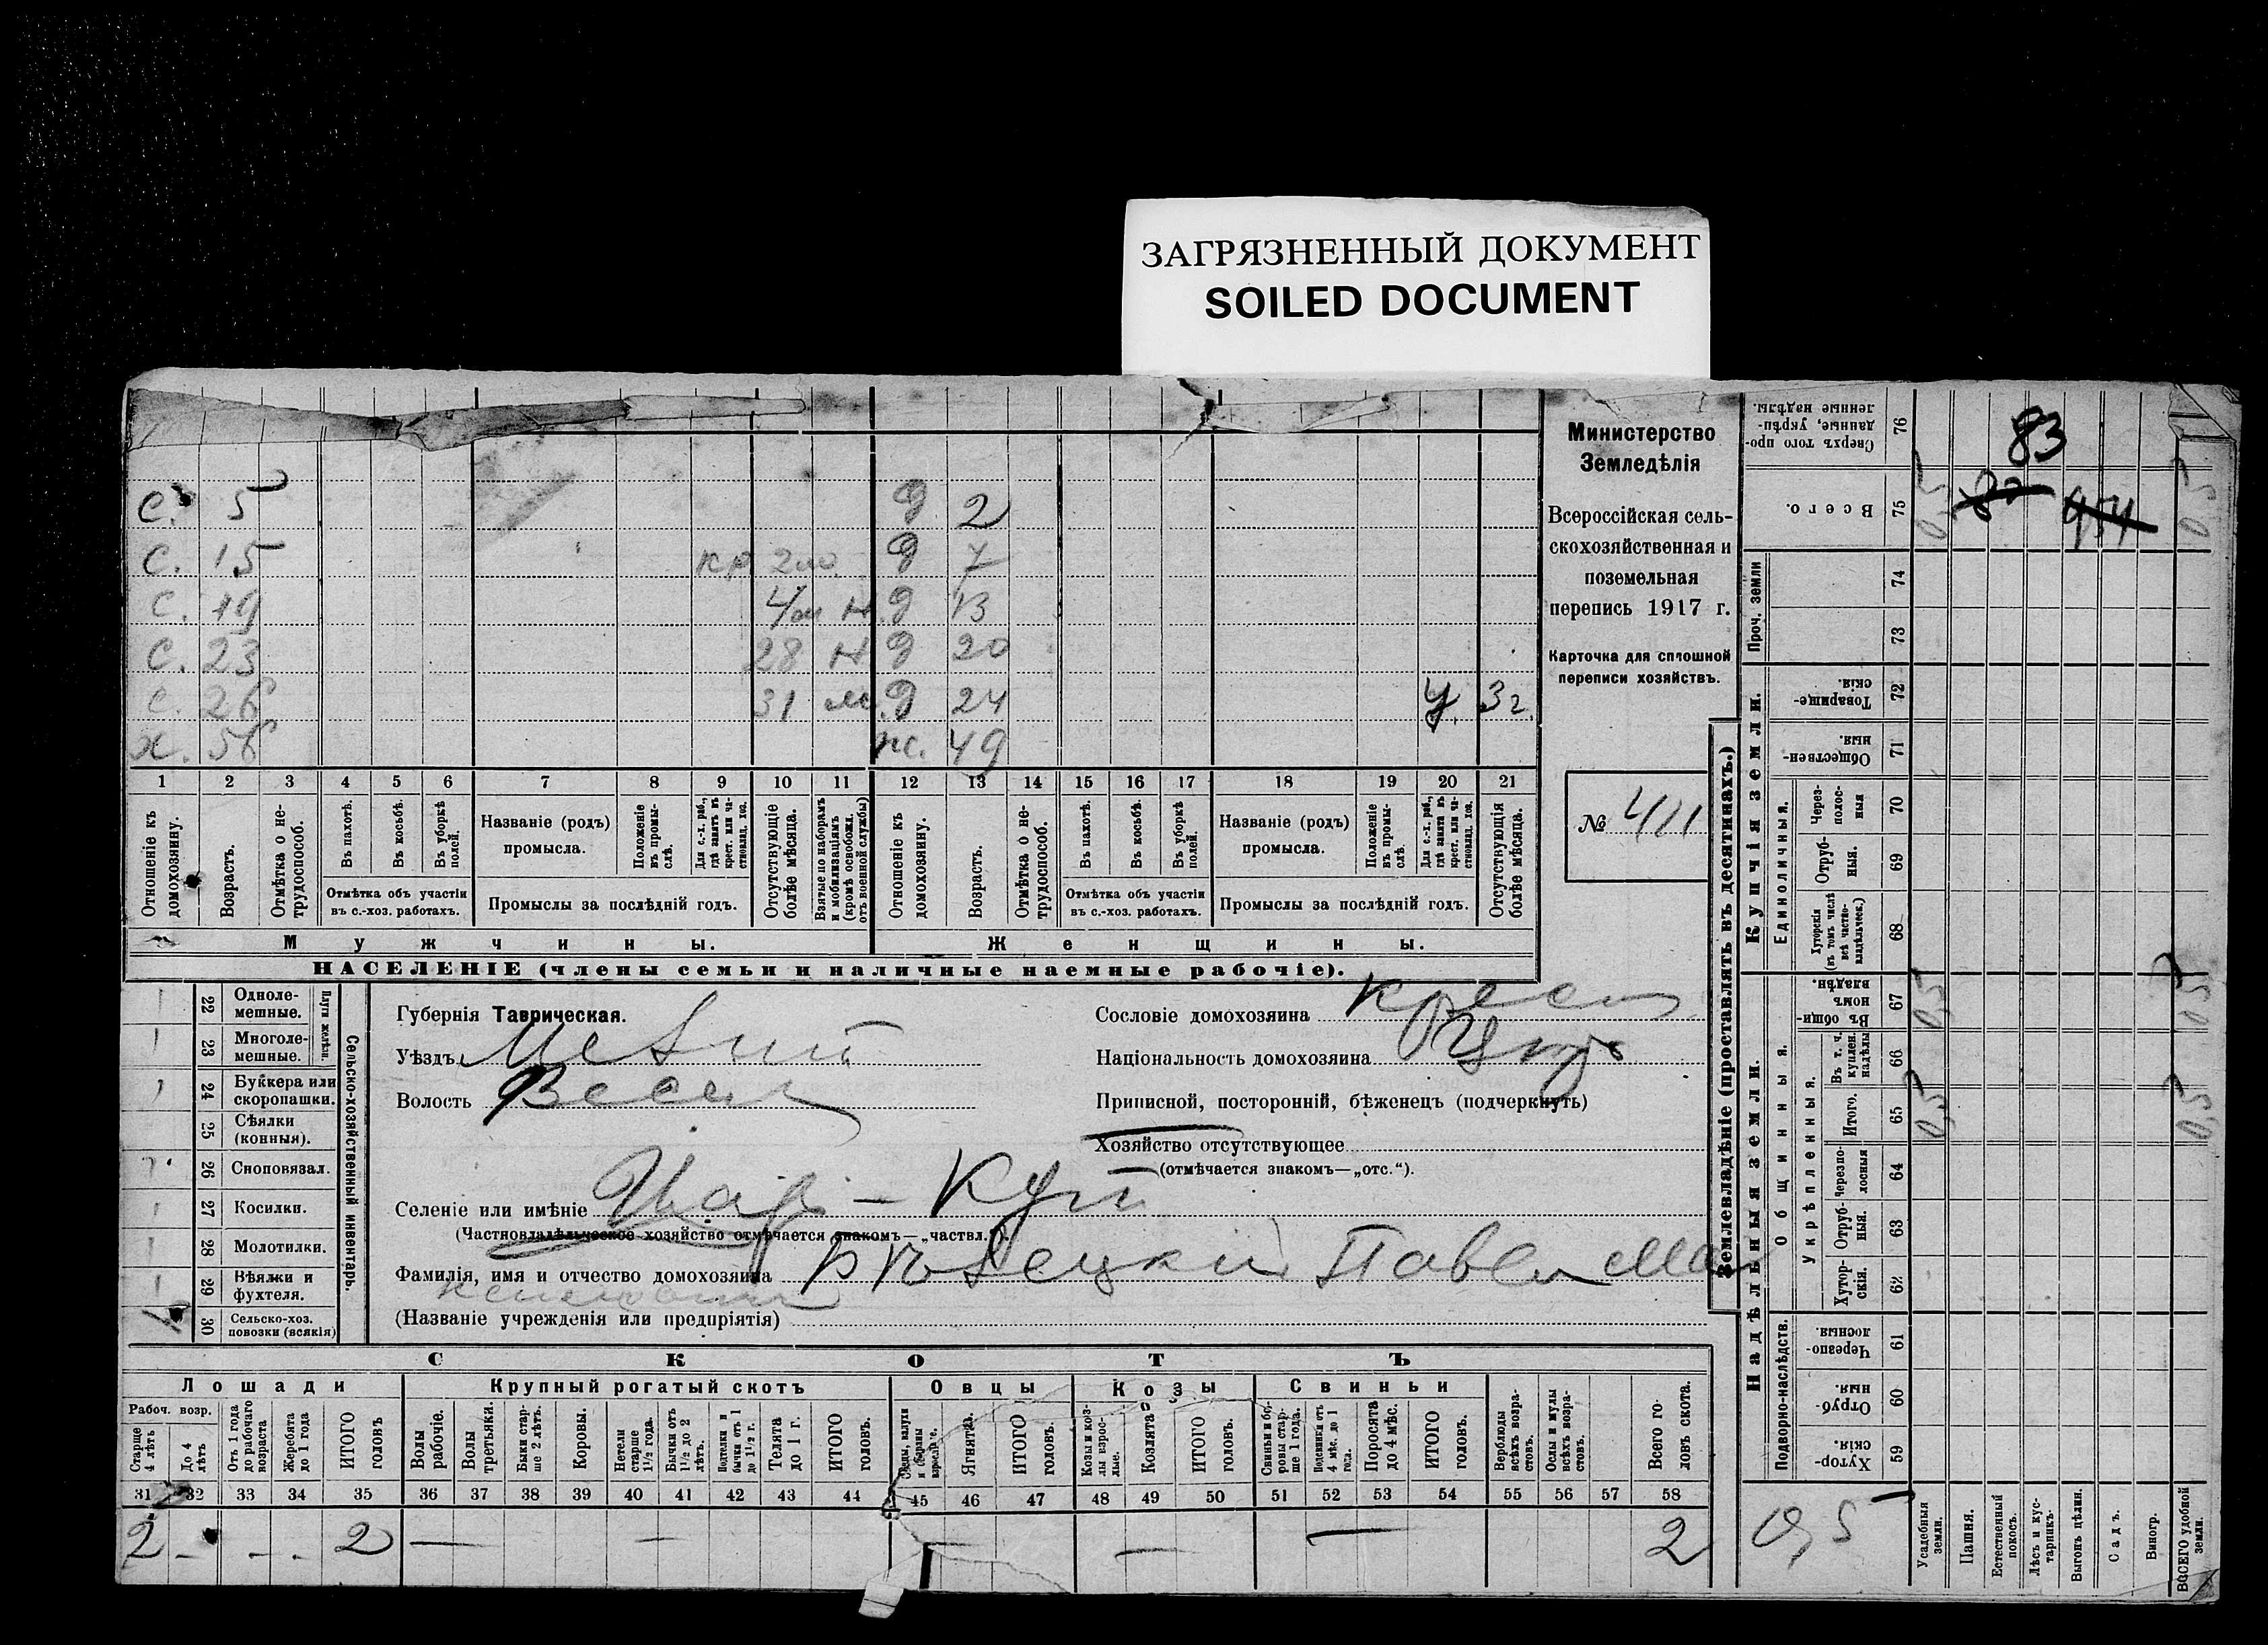 ЗАГРЯЗНЕННЫЙ ДОКУМЕНТ
SOILED DOCUMENT
с. 5 д 2
с. 15 кр 2 д 7
с. 19 н д 13
с. 23 28 н д 20
с. 26 31 м. д 24 у. 3 г.
х. 56 ж. 49
1 2 3 4 5 6 7 8 9 10 11 12 13 14 15 16 17 18 19 20 21
Отношеніе къ домохозяину.
Возрастъ.
Отмѣтка о не-трудоспособ.
Въ пахотѣ.
Въ косьбѣ.
Въ уборкѣ полей.
Отмѣтка объ участіи въ с.-хоз. работахъ.
Названіе (родъ) промысла.
Положеніе въ промы-слѣ.
Для с.-х. раб., гдѣ занятъ въ крест. или ча-стновлад. хоз.
Промыслы за послѣдній годъ.
Отсутствующіе болѣе мѣсяца.
Взятые по наборамъ и мобилизаціямъ (кромѣ освобожд. отъ военной службы)
Отношеніе къ домохозяину.
Возрастъ.
Отмѣтка о не-трудоспособ.
Въ пахотѣ.
Въ косьбѣ.
Въ уборкѣ полей.
Отмѣтка объ участіи въ с.-хоз. работахъ.
Названіе (родъ) промысла.
Положеніе въ промы-слѣ.
Для с.-х. раб., гдѣ занята въ крест. или ча-стновлад. хоз.
Промыслы за послѣдній годъ.
Отсутствующія болѣе мѣсяца.
Мужчины. Женщины.
НАСЕЛЕНІЕ (члены семьи и наличные наемные рабочіе).
Министерство
Земледѣлія
Всероссійская сель-
скохозяйственная и
поземельная
перепись 1917 г.
Карточка для сплошной
переписи хозяйствъ.
№ 411
22 Одноле-мешные.
23 Многоле-мешные.
Плуги желѣзн.
24 Буккера или скоропашки.
25 Сѣялки (конныя).
26 Сноповязал.
27 Косилки.
28 Молотилки.
29 Вѣялки и фухтеля.
30 Сельско-хоз. повозки (всякія)
Сельско-хозяйственный инвентарь.
Губернія Таврическая.
Уѣздъ
Волость
Селеніе или имѣніе Царь-Кутъ
(Частновладѣльческое хозяйство отмѣчается знакомъ—„частвл.“)
Фамилія, имя и отчество домохозяина Павел
(Названіе учрежденія или предпріятія)
Сословіе домохозяина крест
Національность домохозяина
Приписной, посторонній, бѣженецъ (подчеркнуть)
Хозяйство отсутствующее
(отмѣчается знакомъ—„отс.“).
СКОТЪ
Лошади Крупный рогатый скотъ Овцы Козы Свиньи
Рабоч. возр.
Старше 4 лѣтъ
До 4 лѣтъ
Отъ 1 года до рабочаго возраста
Жеребята до 1 года
ИТОГО головъ
Волы рабочіе.
Волы третьяки.
Быки стар-ше 2 лѣтъ.
Коровы.
Нетели старше 1½ года.
Бычки отъ 1½ до 2 лѣтъ.
Подтелки и бычки отъ 1 до 1½ г.
Телята до 1 г.
ИТОГО головъ.
Ягнята.
ИТОГО головъ.
Козы и коз-лы взрос-лые.
Козлята
ИТОГО головъ.
Свиньи и бо-ровы стар-ше 1 года.
Подсвинки отъ 4 мѣс. до 1 года.
Поросята до 4 мѣс.
ИТОГО головъ.
Верблюды всѣхъ возра-стовъ.
Ослы и мулы всѣхъ возра-стовъ.
Всего го-ловъ скота.
31 32 33 34 35 36 37 38 39 40 41 42 43 44 45 46 47 48 49 50 51 52 53 54 55 56 57 58
2 — — . 2 — — — — — 2
Землевладѣніе (проставлять въ десятинахъ.)
Надѣльныя земли. Купчія земли.
Подворно-наслѣдств.
Общинныя.
Укрѣпленныя.
Единоличныя.
Проч. земли
Сверхъ того про-данные, укрѣп-ленные надѣлы. 76 83
Всего. 75 0,5 0,5
74
73
Товарище-скія. 72
Обществен-ныя. 71
Через-полос-ныя 70
Отруб-ныя. 69
Хуторскія (въ томъ числѣ всѣ частно-владѣльческ.) 68
Въ общи-номъ владѣн. 67 0,5 0,5
Въ т. ч. куплен. надѣлы 66
Итого. 65 0,5 0,5
Черезпо-лосныя 64
Отруб-ныя. 63
Хутор-скія. 62
Черезпо-лосныя. 61
Отруб-ныя. 60
Хутор-скія. 59
0,5
Усадебныя земли.
Пашня.
Естественный покосъ.
Лѣсъ и кус-тарникъ.
Выгонъ цѣлин.
Садъ.
Виногр.
ВСЕГО удобной земли.